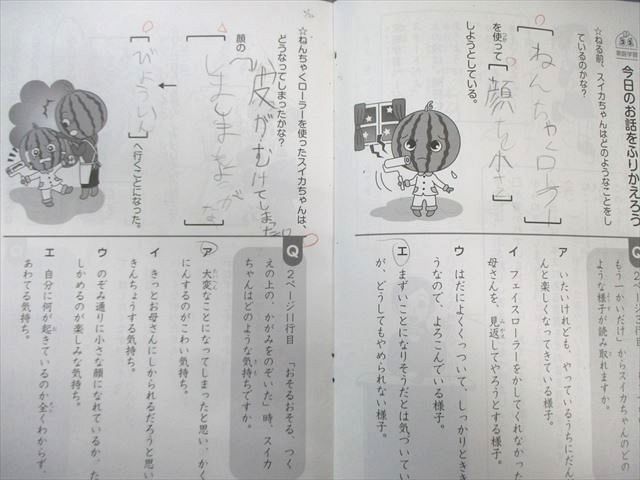 家庭学習
今日のお話をふりかえろう
☆ねる前、スイカちゃんはどのようなことをし
ているのかな?
[ねんちゃくローラー]
を使って[顔を小さく]
しようとしている。
☆ねんちゃくローラーを使ったスイカちゃんは、
どうなってしまったかな?
顔の[皮がむけてしまった
しましまもようが]
↓
[びょういん]へ行くことになった。
Q
もう一かいだけ」からスイカちゃんのどの
ような様子が読み取れますか。
ア いたいけれども、やっているうちにだん
んと楽しくなってきている様子。
イ フェイスローラーをかしてくれなかった
母さんを、見返してやろうとする様子。
ウ はだによくくっついて、しっかりときき
うなので、よろこんでいる様子。
エ まずいことになりそうだとは気づいてい
が、どうしてもやめられない様子。
Q
2ページ11行目 「おそるおそる、つく
えの上の、かがみをのぞいた」時、スイカ
ちゃんはどのような気持ちですか。
ア 大変なことになってしまったと思い、かく
にんするのがこわい気持ち。
イ きっとお母さんにしかられるだろうと思い
きんちょうする気持ち。
ウ のぞみ通りに小さな顔になれているか、た
しかめるのが楽しみな気持ち。
エ 自分に何が起きているのか全くわからず、
あわてる気持ち。